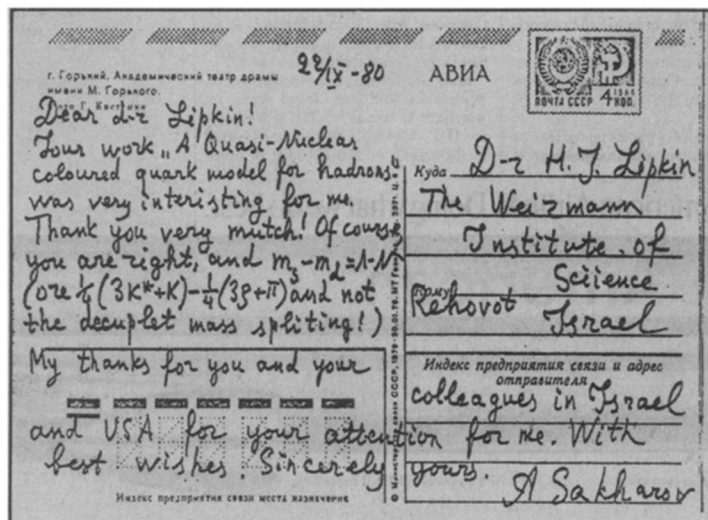 22/IX-80
АВИА
ПОЧТА СССР 4 КОП.
г. Горький. Академический театр драмы
имени М. Горького.
Dear d-r Lipkin!
Your work „A Quasi-Nuclear
coloured quark model for hadrons"
was very interisting for me.
Thank you very mutch! Of course
you are right, and m_s-m_d=Λ-N
(ore ¼(3K*+K)-¼(3ρ+π) and not
the decuplet mass spliting!)
My thanks for you and your
colleagues in Israel
and USA for your attention for me. With
best wishes. Sincerely yours.
A Sakharov
Куда D-r H. J. Lipkin
The Weizmann
Institute of
Sciience
Кому Rehovot Israel
Индекс предприятия связи и адрес
отправителя
Индекс предприятия связи места назначения